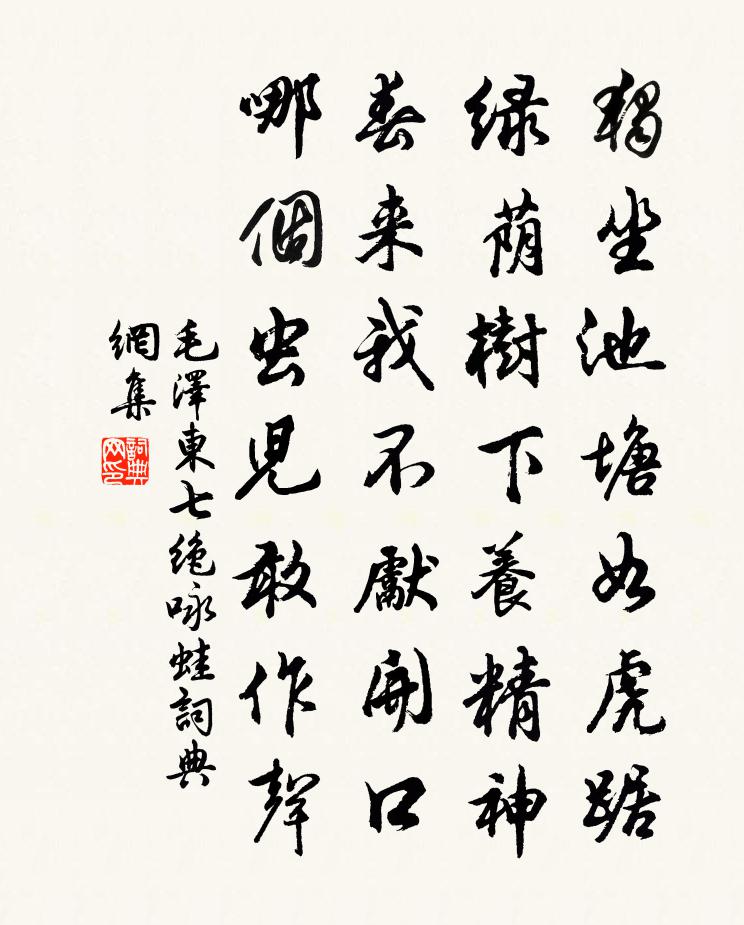 獨坐池塘如虎踞
绿荫樹下養精神
春来我不獻開口
哪個虫児敢作聲
毛澤東七绝咏蛙詞典
網集
詞典
网印